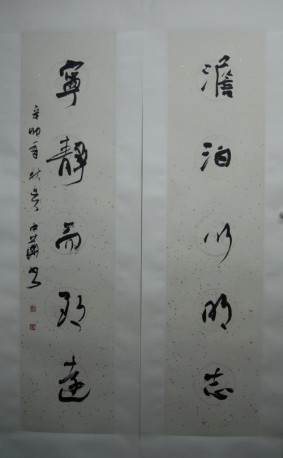 澹泊以明志
寧靜而致遠
辛卯年秋